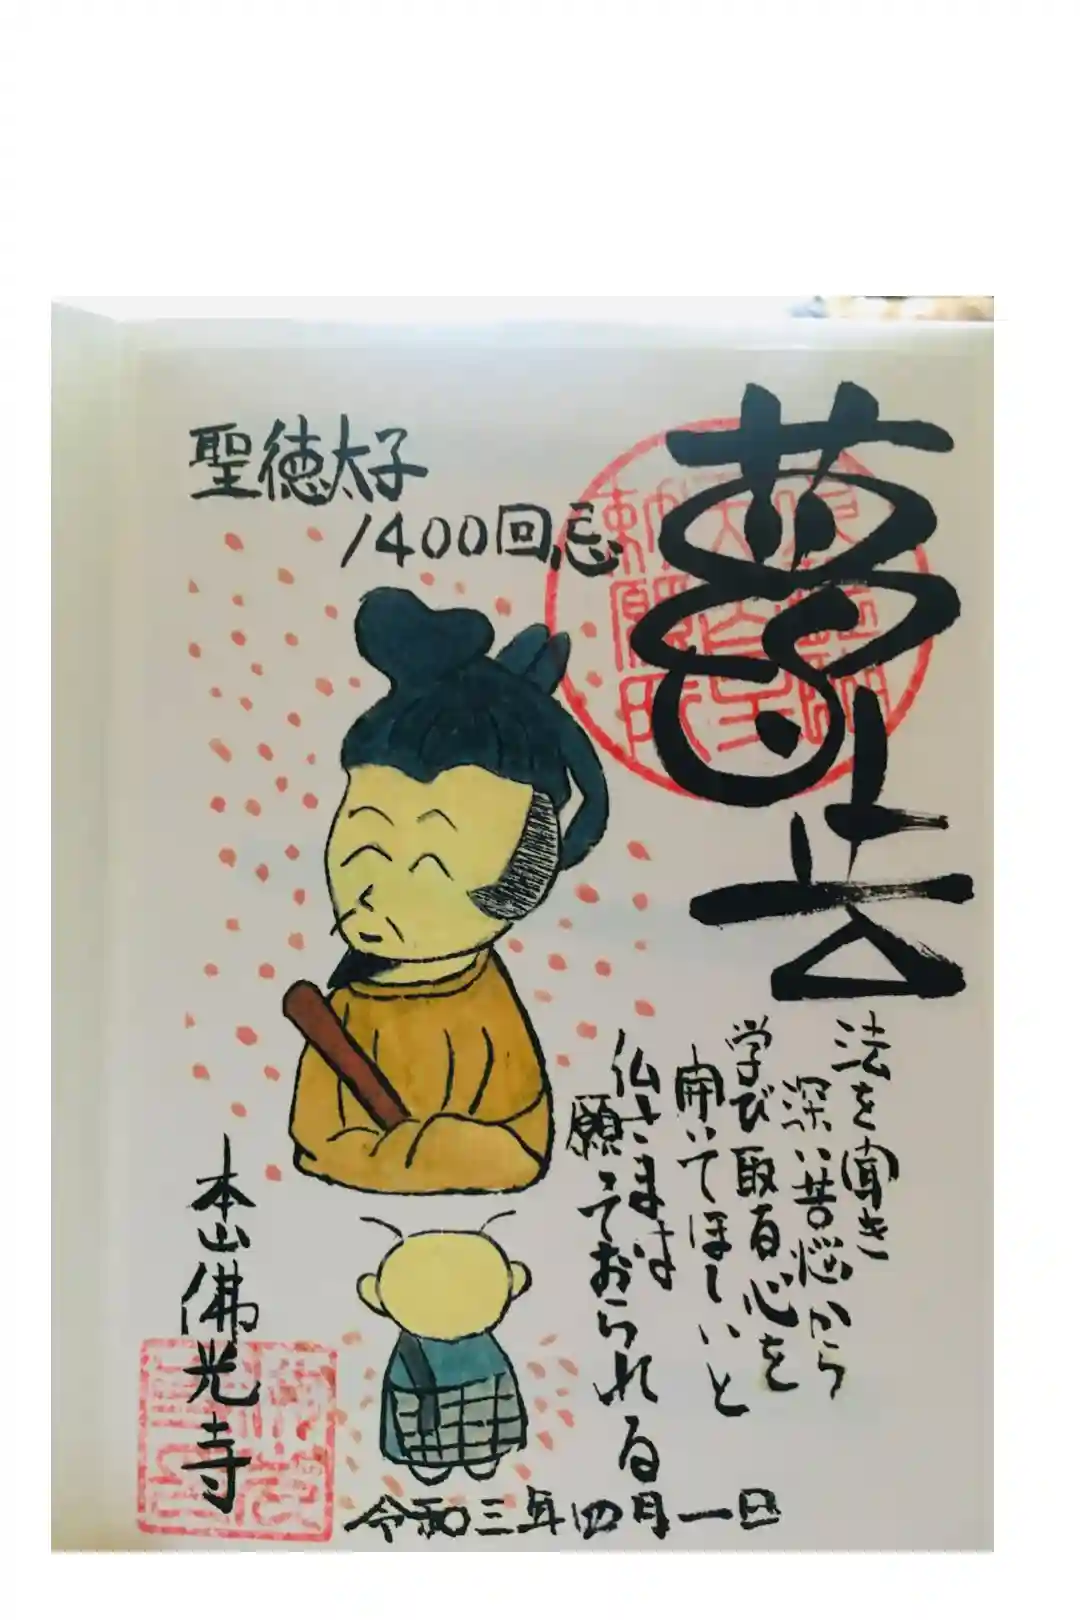 夢告
聖徳太子
1400回忌
法を聞き
深い苦悩から
学び取る心を
開いてほしいと
仏さまは
願っておられる
本山佛光寺
令和三年四月一日